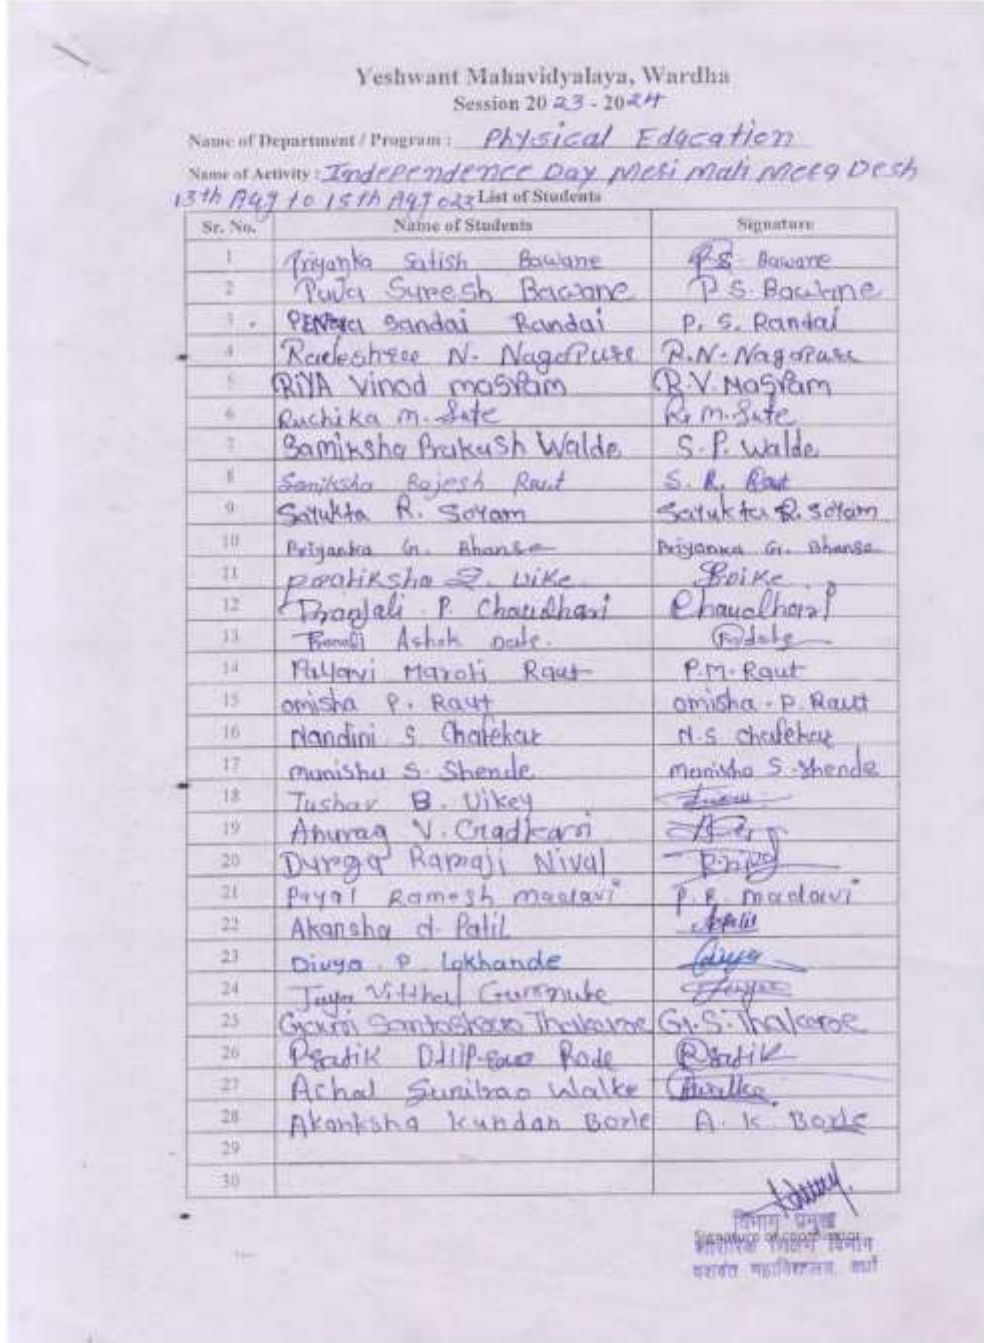 Yeshwant Mahavidyalaya, Wardha
Session 2023 - 2024
Name of Department / Program : Physical Education
Name of Activity : Independence Day Meri Mati Mera Desh
13th Aug to 15th Aug 023 List of Students
Sr. No. Name of Students Signature
1 Priyanka Satish Bawane P.S. Bawane
2 Puja Suresh Bawane P.S. Bawane
3 Sandai Randai P. S. Randai
4 N. Nagapure R.N. Nagapure
5 RiYA Vinod masram R.V. Masram
6 Ruchika m. Sute R. m. Sute
7 Samiksha Prakash Walde S.P. Walde
8 Samiksha Rajesh Raut S. R. Raut
9 Sayukta R. Soyam Sayukta R. Soyam
10 Priyanka G. Bhanse Priyanka G. Bhanse
11 pratiksha Uike
12 Pranjali P. Chaudhari Chaudhari
13 Ashok Date.
14 Pallavi Maroti Raut P.M. Raut
15 omisha P. Raut omisha . P. Raut
16 Nandini S. Chafekar N.S. Chafekar
17 manisha S. Shende manisha S. Shende
18 Tushar B. Uikey
19 Anurag V.
20 Durga Ramaji Nival
21 Payal Ramesh madavi P. R. madavi
22 Akansha d. Patil
23 Divya P. Lokhande Divya
24 Jaya Vitthal Jaya
25 Gauri Thakare G.S. Thakare
26 Pratik Rode Pratik
27 Achal Sunilrao Walke AWalke
28 Akanksha kundan Borle A. K. Borle
29
30
विभाग प्रमुख
Signature of
शारीरिक शिक्षण विभाग
यशवंत महाविद्यालय, वर्धा